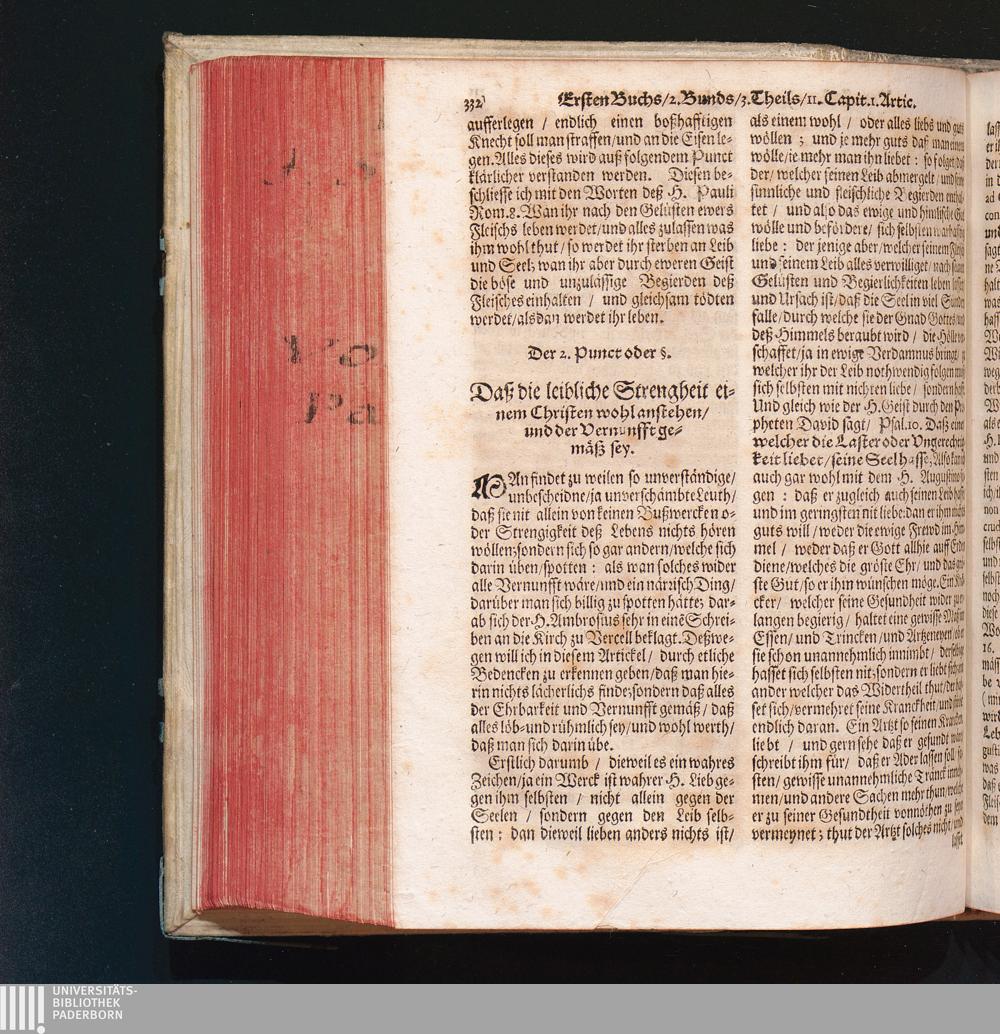 332
Ersten Buchs/2. Bunds/3. Theils/11. Capit. 1. Artic.
aufferlegen / endlich einen boßhafftigen
Knecht soll man straffen/und an die Eisen le-
gen. Alles dieses wird auß folgendem Punct
klärlicher verstanden werden. Diesen be-
schliesse ich mit den Worten deß H. Pauli
Rom. 8. Wan ihr nach den Gelüsten ewers
Fleischs leben werdet/und alles zulassen was
ihm wohl thut / so werdet ihr sterben an Leib
und Seel; wan ihr aber durch eweren Geist
die böse und unzulässige Begierden deß
Fleisches einhalten / und gleichsam tödten
werdet/alsdan werdet ihr leben.
Der 2. Punct oder §.
Daß die leibliche Strengheit ei-
nem Christen wohl anstehen/
und der Vernunfft ge-
mäß sey.
MAn findet zu weilen so unverständige/
unbescheidne/ja unverschämbte Leuth/
daß sie nit allein von keinen Bußwercken o-
der Strengigkeit deß Lebens nichts hören
wöllen;sondern sich so gar andern/welche sich
darin üben/spotten : als wan solches wider
alle Vernunfft wäre/und ein närzisch Ding/
darüber man sich billig zu spotten hätte; dar-
ab sich der H. Ambrosius sehr in eine Schrei-
ben an die Kirch zu Vercell beklagt. Deßwe-
gen will ich in diesem Artickel / durch etliche
Bedencken zu erkennen geben/daß man hie-
rin nichts lächerlichs finde;sondern daß alles
der Ehrbarkeit und Vernunfft gemäß / daß
alles löb-und rühmlich sey/und wohl werth/
daß man sich darin übe.
Erstlich darumb / dieweil es ein wahres
Zeichen/ja ein Werck ist wahrer H. Lieb ge-
gen ihm selbsten / nicht allein gegen der
Seelen / sondern gegen den Leib selb-
sten : dan dieweil lieben anders nichts ist/
als einem wohl / oder alles liebs und guts
wöllen ; und je mehr guts daß man einem
wölle/je mehr man ihn liebet : so folget daß
der/ welcher seinen Leib abmergelt / und seine
sinnliche und fleischliche Begierden enthal-
tet / und also das ewige und himlische Gut
wölle und befördere/ sich selbsten warhafftig
liebe : der jenige aber/welcher seinem Fleisch
und seinem Leib alles verwilliget/nach seinen
Gelüsten und Begierlichkeiten leben lasset
und Ursach ist/daß die Seel in viel Sünden
falle/durch welche sie der Gnad Gottes/und
deß Himmels beraubt wird / die Höll ver-
schaffet/ja in ewige Verdamnus bringt/
welcher ihr der Leib nothwendig folgen muß
sich selbsten mit nichten liebe / sondern hasse.
Und gleich wie der H. Geist durch den Pro-
pheten David sagt/ Psal. 10. Daß einer
welcher die Laster oder Ungerechtig-
keit liebet/seine Seel hasse; Also kan
auch gar wohl mit dem H. Augustino
gen : daß er zugleich auch seinen Leib hasse
und im geringsten nit liebe:dan er ihm nichts
guts will / weder die ewige Frewd im Him-
mel / weder daß er Gott allhie auff Erden
diene/welches die gröste Ehr/ und das grö-
ste Gut/so er ihm wünschen möge. Ein Kran-
cker/ welcher seine Gesundheit wider zu er-
langen begierig / haltet eine gewisse Maß im
Essen/ und Trincken/ und Artzeneyen/ ob er
sie schon unannehmlich innimbt / derselbige
hasset sich selbsten nit;sondern er liebt sich:ein
ander welcher das Widertheil thut/der has-
set sich/vermehret seine Kranckheit/und stirbt
endlich daran. Ein Artzt so seinen Krancken
liebt / und gern sehe daß er gesundt wäre
schreibt ihm für/ daß er Ader lassen soll/ fa-
sten/ gewisse unannehmliche Tränck inneh-
men/und andere Sachen mehr thun/welche
er zu seiner Gesundtheit vonnöthen zu seyn
vermeynet ; thut der Artzt solches nicht/und
lasst
UNIVERSITÄTS-
BIBLIOTHEK
PADERBORN